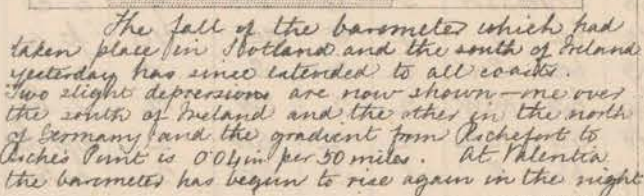 The fall of the barometer which had
taken place in Scotland and the south of Ireland
yesterday has since extended to all coasts.
Two slight depressions are now shown - one over
the south of Ireland and the other in the north
of Germany and the gradient from Rochefort to
Roche's Point is 0.04 in per 50 miles. At Valentia
the barometer has begun to rise again in the night